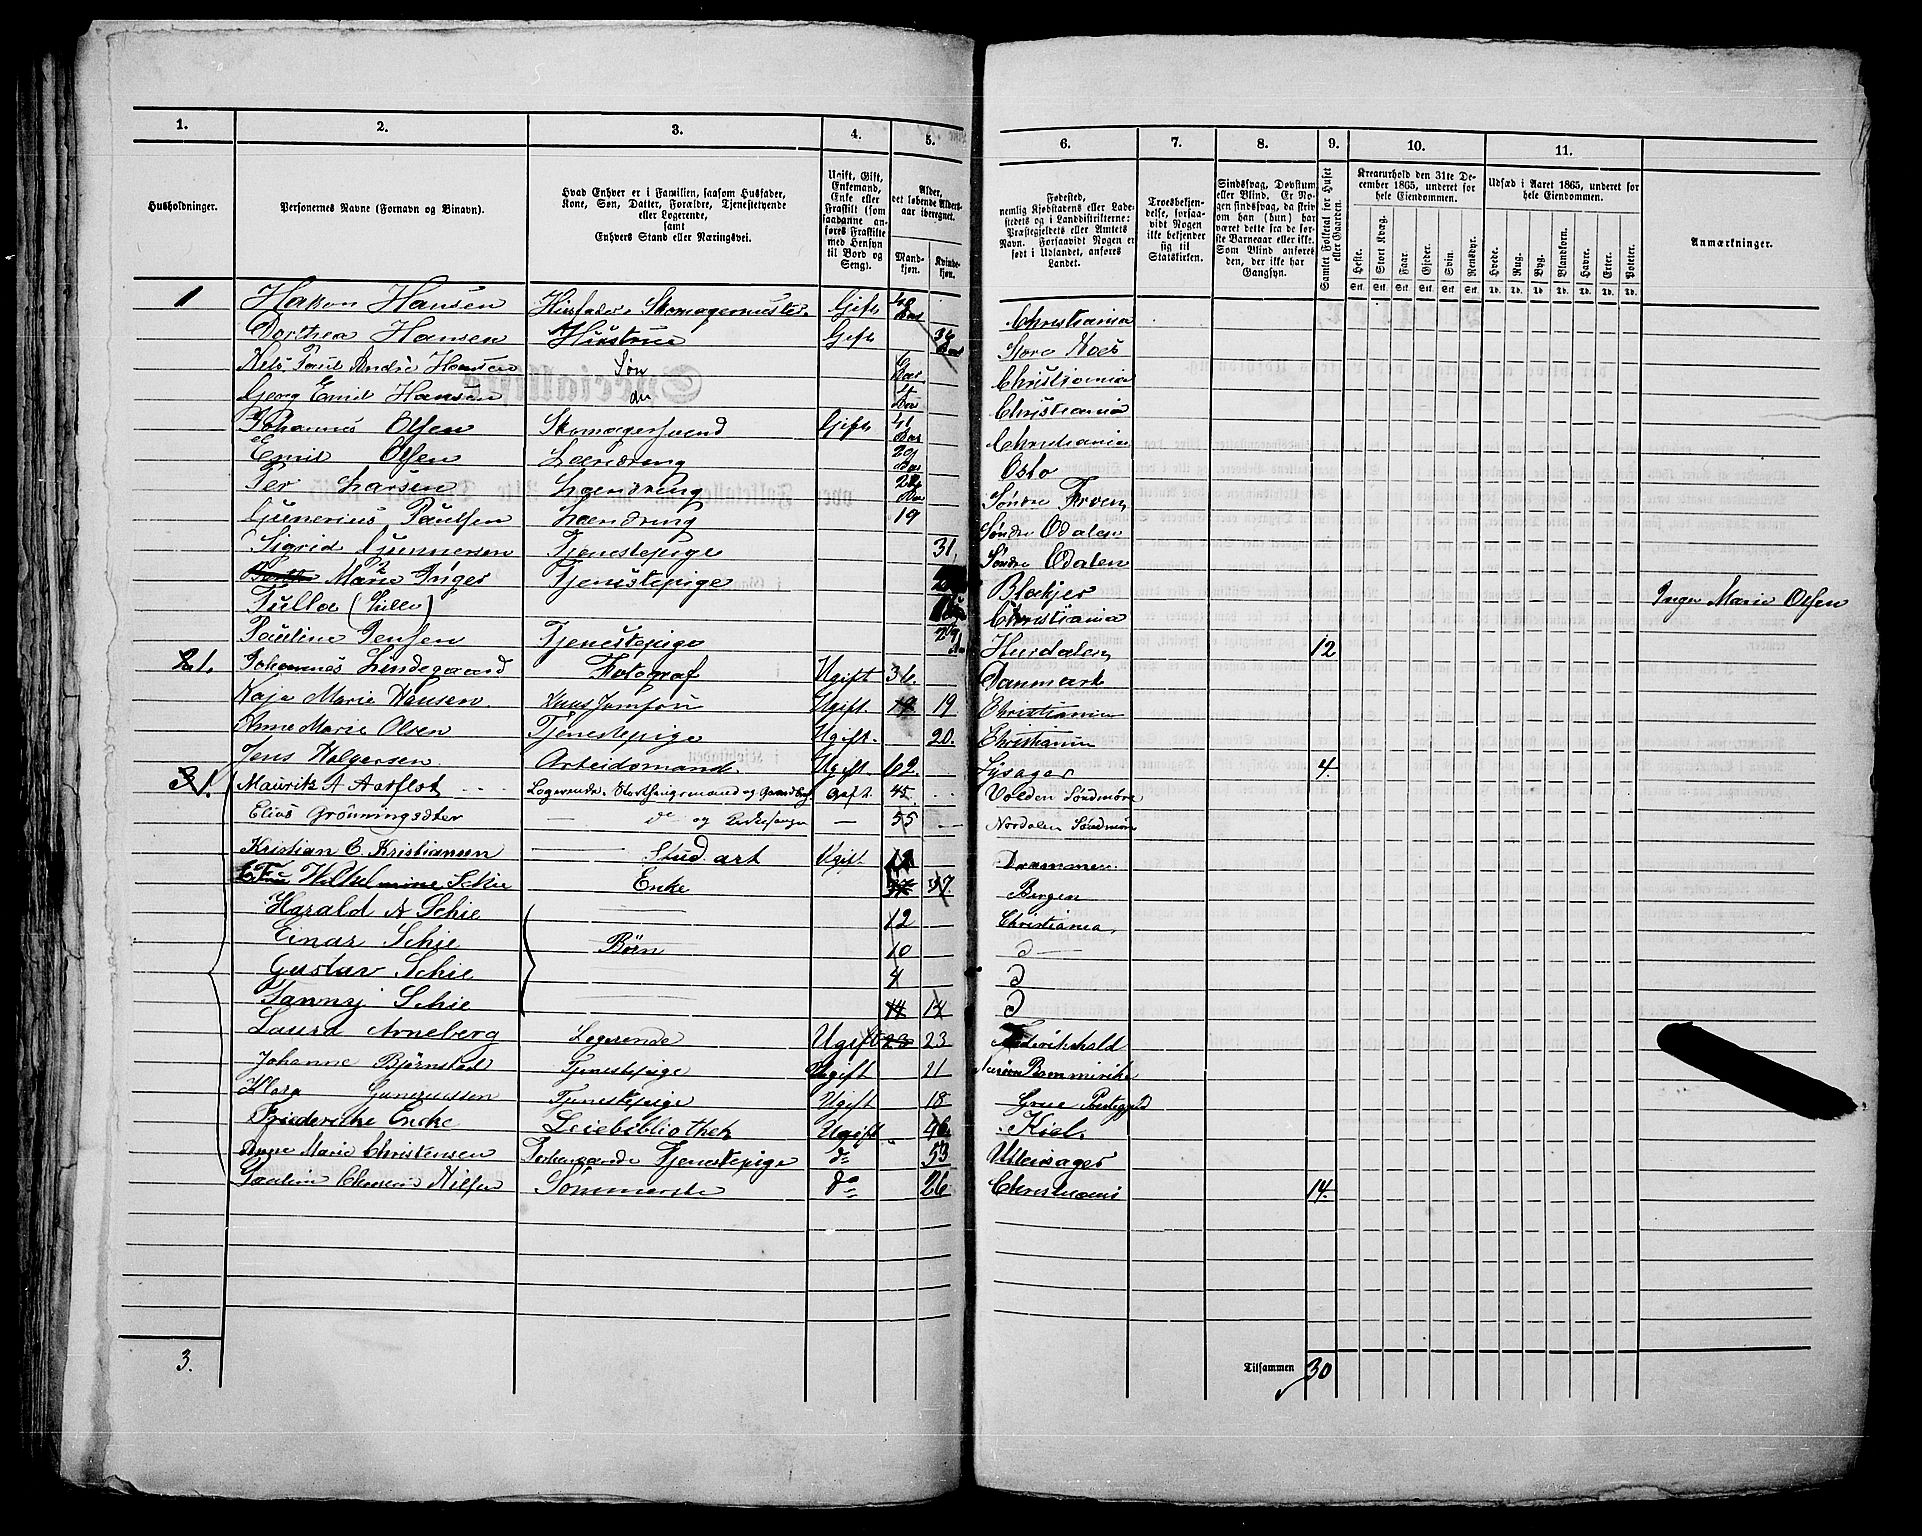 1. 2. 3. 4. 5. 6. 7. 8. 9. 10. 11.
Husholdninger.
Personernes Navne (Fornavn og Binavn).
Hvad Enhver er i Familien, saasom Husfader, Kone, Søn, Datter, Forældre, Tjenestetyende eller Logerende, samt Enhvers Stand eller Næringsvei.
Ugift, Gift, Enkemand, Enke eller Fraskilt (som saadanne anføres Fraskilte med Hensyn til Bord og Seng).
Alder, det løbende Aldersaar iberegnet.
Mandkjøn. Kvindekjøn.
Fødested, nemlig Kjøbstadens eller Ladestedets og i Landdistrikterne: Præstegjeldets eller Amtets Navn. Forsaavidt Nogen er født i Udlandet, anføres Landet.
Troesbekjendelse, forsaavidt Nogen ikke bekjender sig til Statskirken.
Sindssvag, Døvstum eller Blind. Er Nogen sindssvag, da skrives om han (hun) har været dette fra de første Barneaar eller ikke. Som Blind anføres den, der ikke har Gangsyn.
Samlet Folketal for Huset eller Gaarden.
Kreaturhold den 31te December 1865, underet for hele Eiendommen.
Heste. Stort Kvæg. Faar. Gjeder. Svin. Rensdyr.
Udsæd i Aaret 1865, underet for hele Eiendommen.
Hvede. Rug. Byg. Blandkorn. Havre. Erter. Poteter.
Anmærkninger.
1 Hakon Hansen Husfader Skomagermester Gift 40 Christiania
Dorthea Hansen Hustrue Gift 34 Store Noes
Nils Poul Andre Hansen Søn 6 Christiania
Georg Emil Hansen do 4 Christiania
Johannes Olsen Skomagersvend Gift 41 Christiania
Emil Olsen Læredreng 20 Oslo
Per Larsen Læredreng Søndre
Gunerius Paulsen Læredreng 19 Søndre Odalen
Sigrid Gunnersen Tjenestepige 31 Søndre Odalen
Marie Inger Tjenestepige Blakjer Inger Marie Olsen
Julla (Lilli) Christiania
Pauline Jensen Tjenestepige Hurdalen 12
2 1. Johannes Lindegaard Fotograf Ugift 36 Danmark
Kaja Marie Hansen Huus Jomfru Ugift 19 Christiania
Anne Marie Olsen Tjenestepige Ugift. 20. Christiania
Jens Holgersen Arbeidsmand Ugift. Lysager 4.
3 1. Maurik A Aarflot Logerende. Storthingsmand og Gaardbr Gift 45 Volden Søndmøre
Elias Grønningsæter do og 55 Nordalen Søndmøre
Kristian C. Kristiansen Stud art Ugift 19 Drammen
Fru Wilhelmine Schie Enke 37 Bergen
Harald A Schie 12 Christiania
Einar Schie Børn 10 d
Gustav Schie 4 d
Fanny Schie 14 14 d
Laura Arneberg Logerende Ugift 23 23 Frederikshald
Johanne Bjørnstad Tjenestepige Ugift 21
Klara Gunerudsen Tjenestepige Ugift 18 Grue Prestegjeld
Friederike Encke Leiebibliothek Ugift 46 Kiel
Anne Marie Christensen Tjenestepige do 53 Ullensager
Paulin Nilsen Sømmerske do 26 Christiania 14.
3. Tilsammen 30